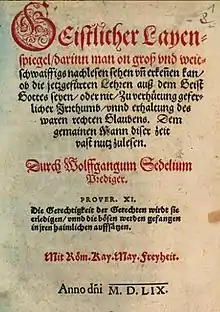 Geistlicher Layen-
spiegel/darinn man on groß vnd weit-
schwaiffigs nachlesen sehen vñ erkeñen kan/
ob die jetzgefürten Lehren auß dem Geist
Gottes seyen/ oder nit/ Zu verhütung gefer-
licher Irrthumb/ vnnd erhaltung des
waren rechten Glaubens. Dem
gemainen Mann diser zeit
vast nutz zulesen.
Durch Wolffgangum Sedelium
Prediger.
PROVER. XI.
Die Gerechtigkeit der Gerechten wirdt sie
erledigen/ vnnd die bösen werden gefangen
in jren haimlichen auffsätzen.
Mit Röm. Kay. May. Freyheit.
Anno dñi M. D. LIX.